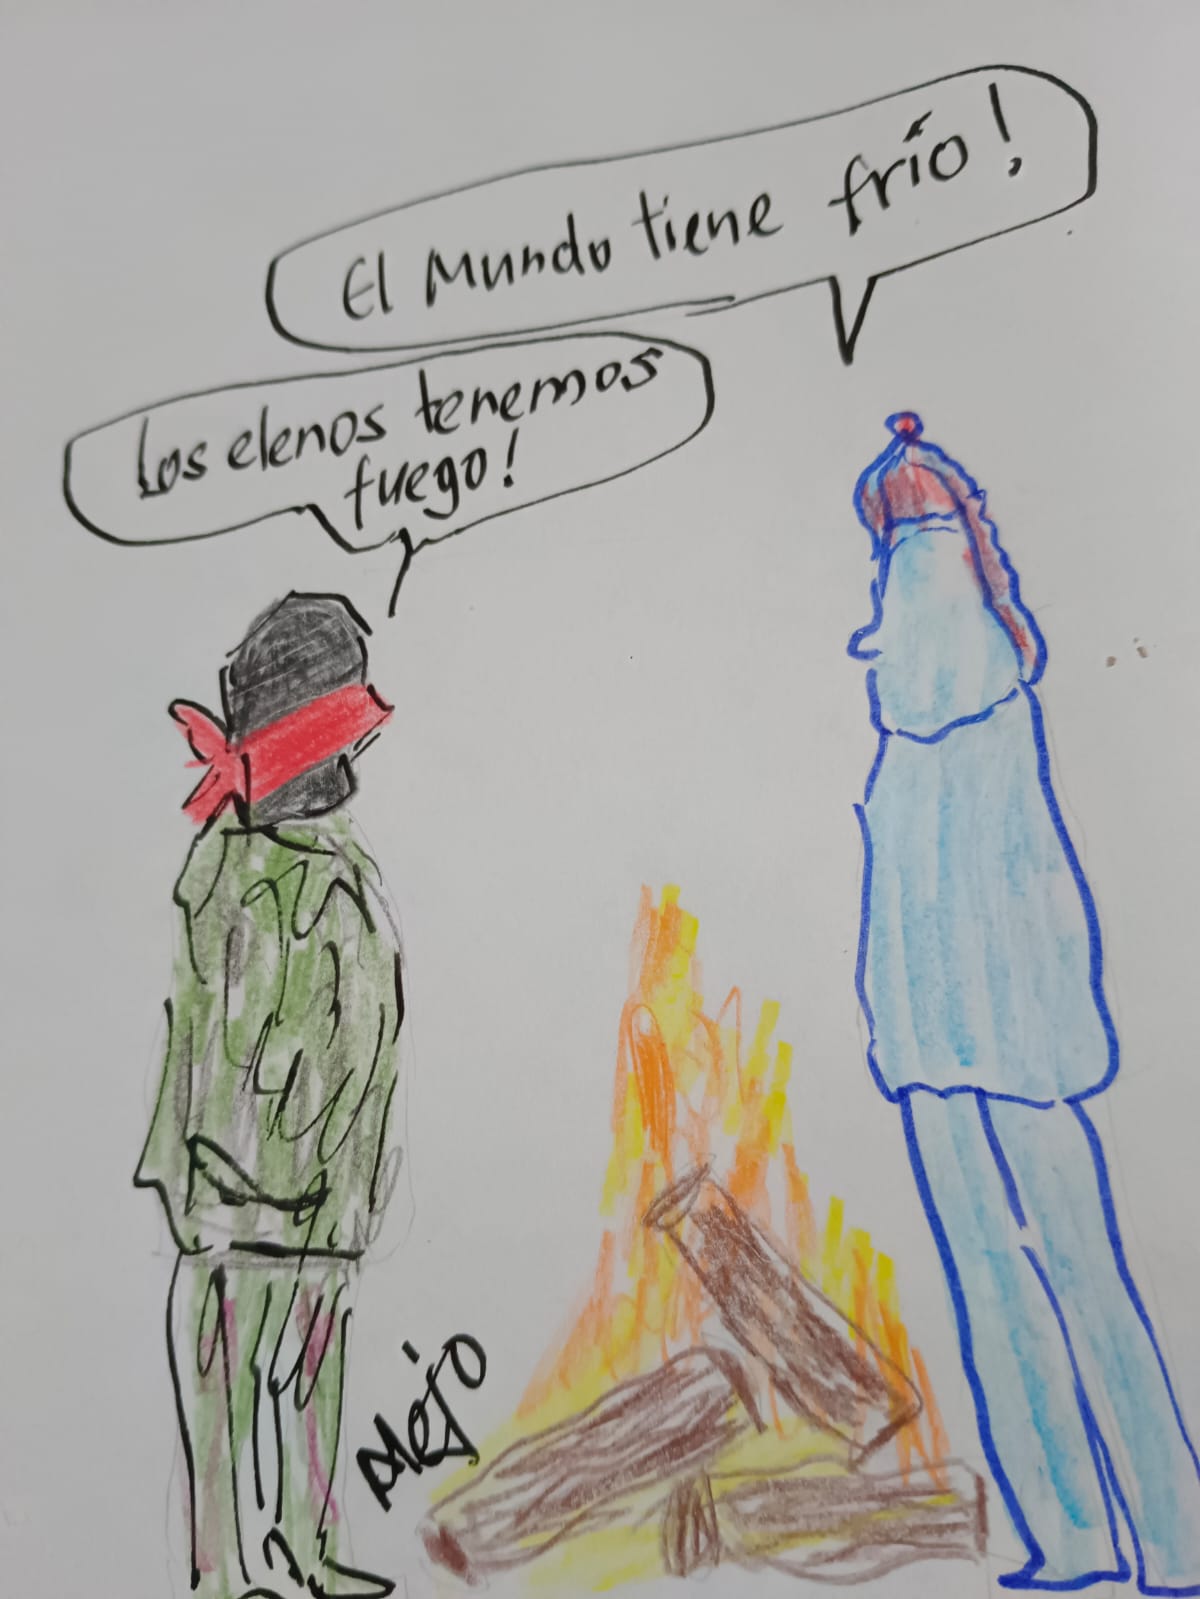 El Mundo tiene frío!
Los elenos tenemos
fuego!
Alejo